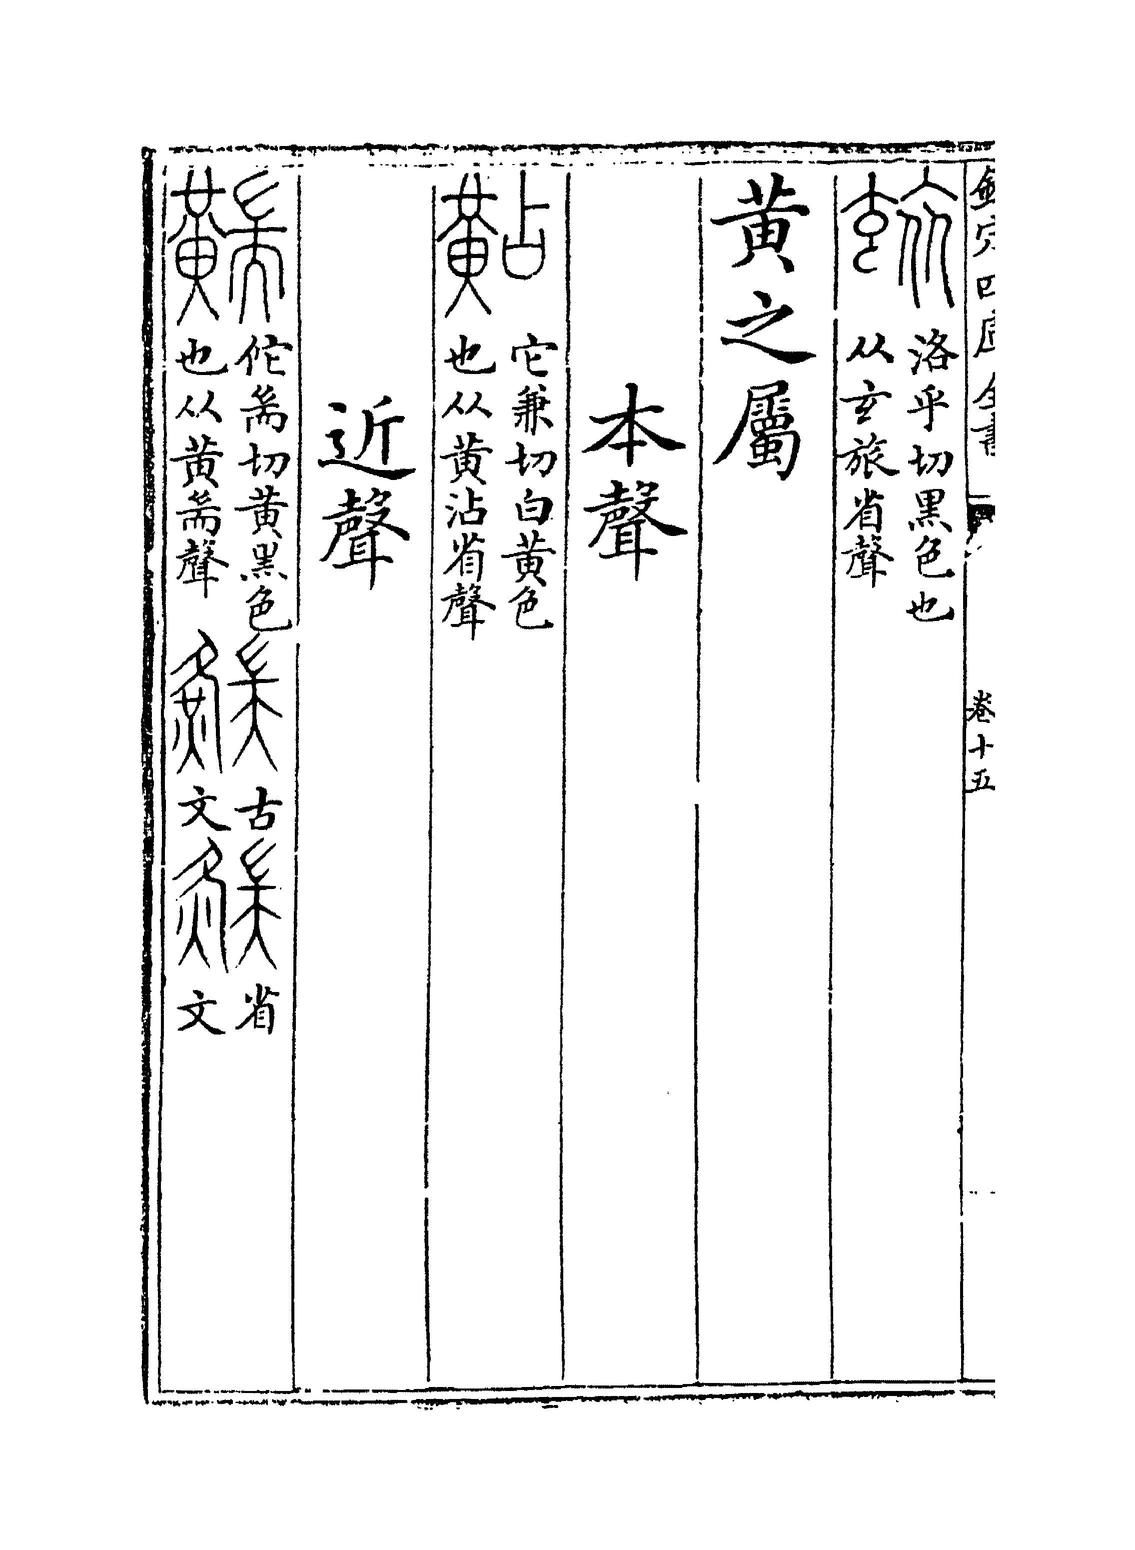 欽定四庫全書 卷十五
玈 洛乎切黑色也
从玄旅省聲
黄之屬
本聲
黇 它兼切白黄色
也从黄沾省聲
近聲
佗耑切黄黑色
也从黄耑聲
古文
省文